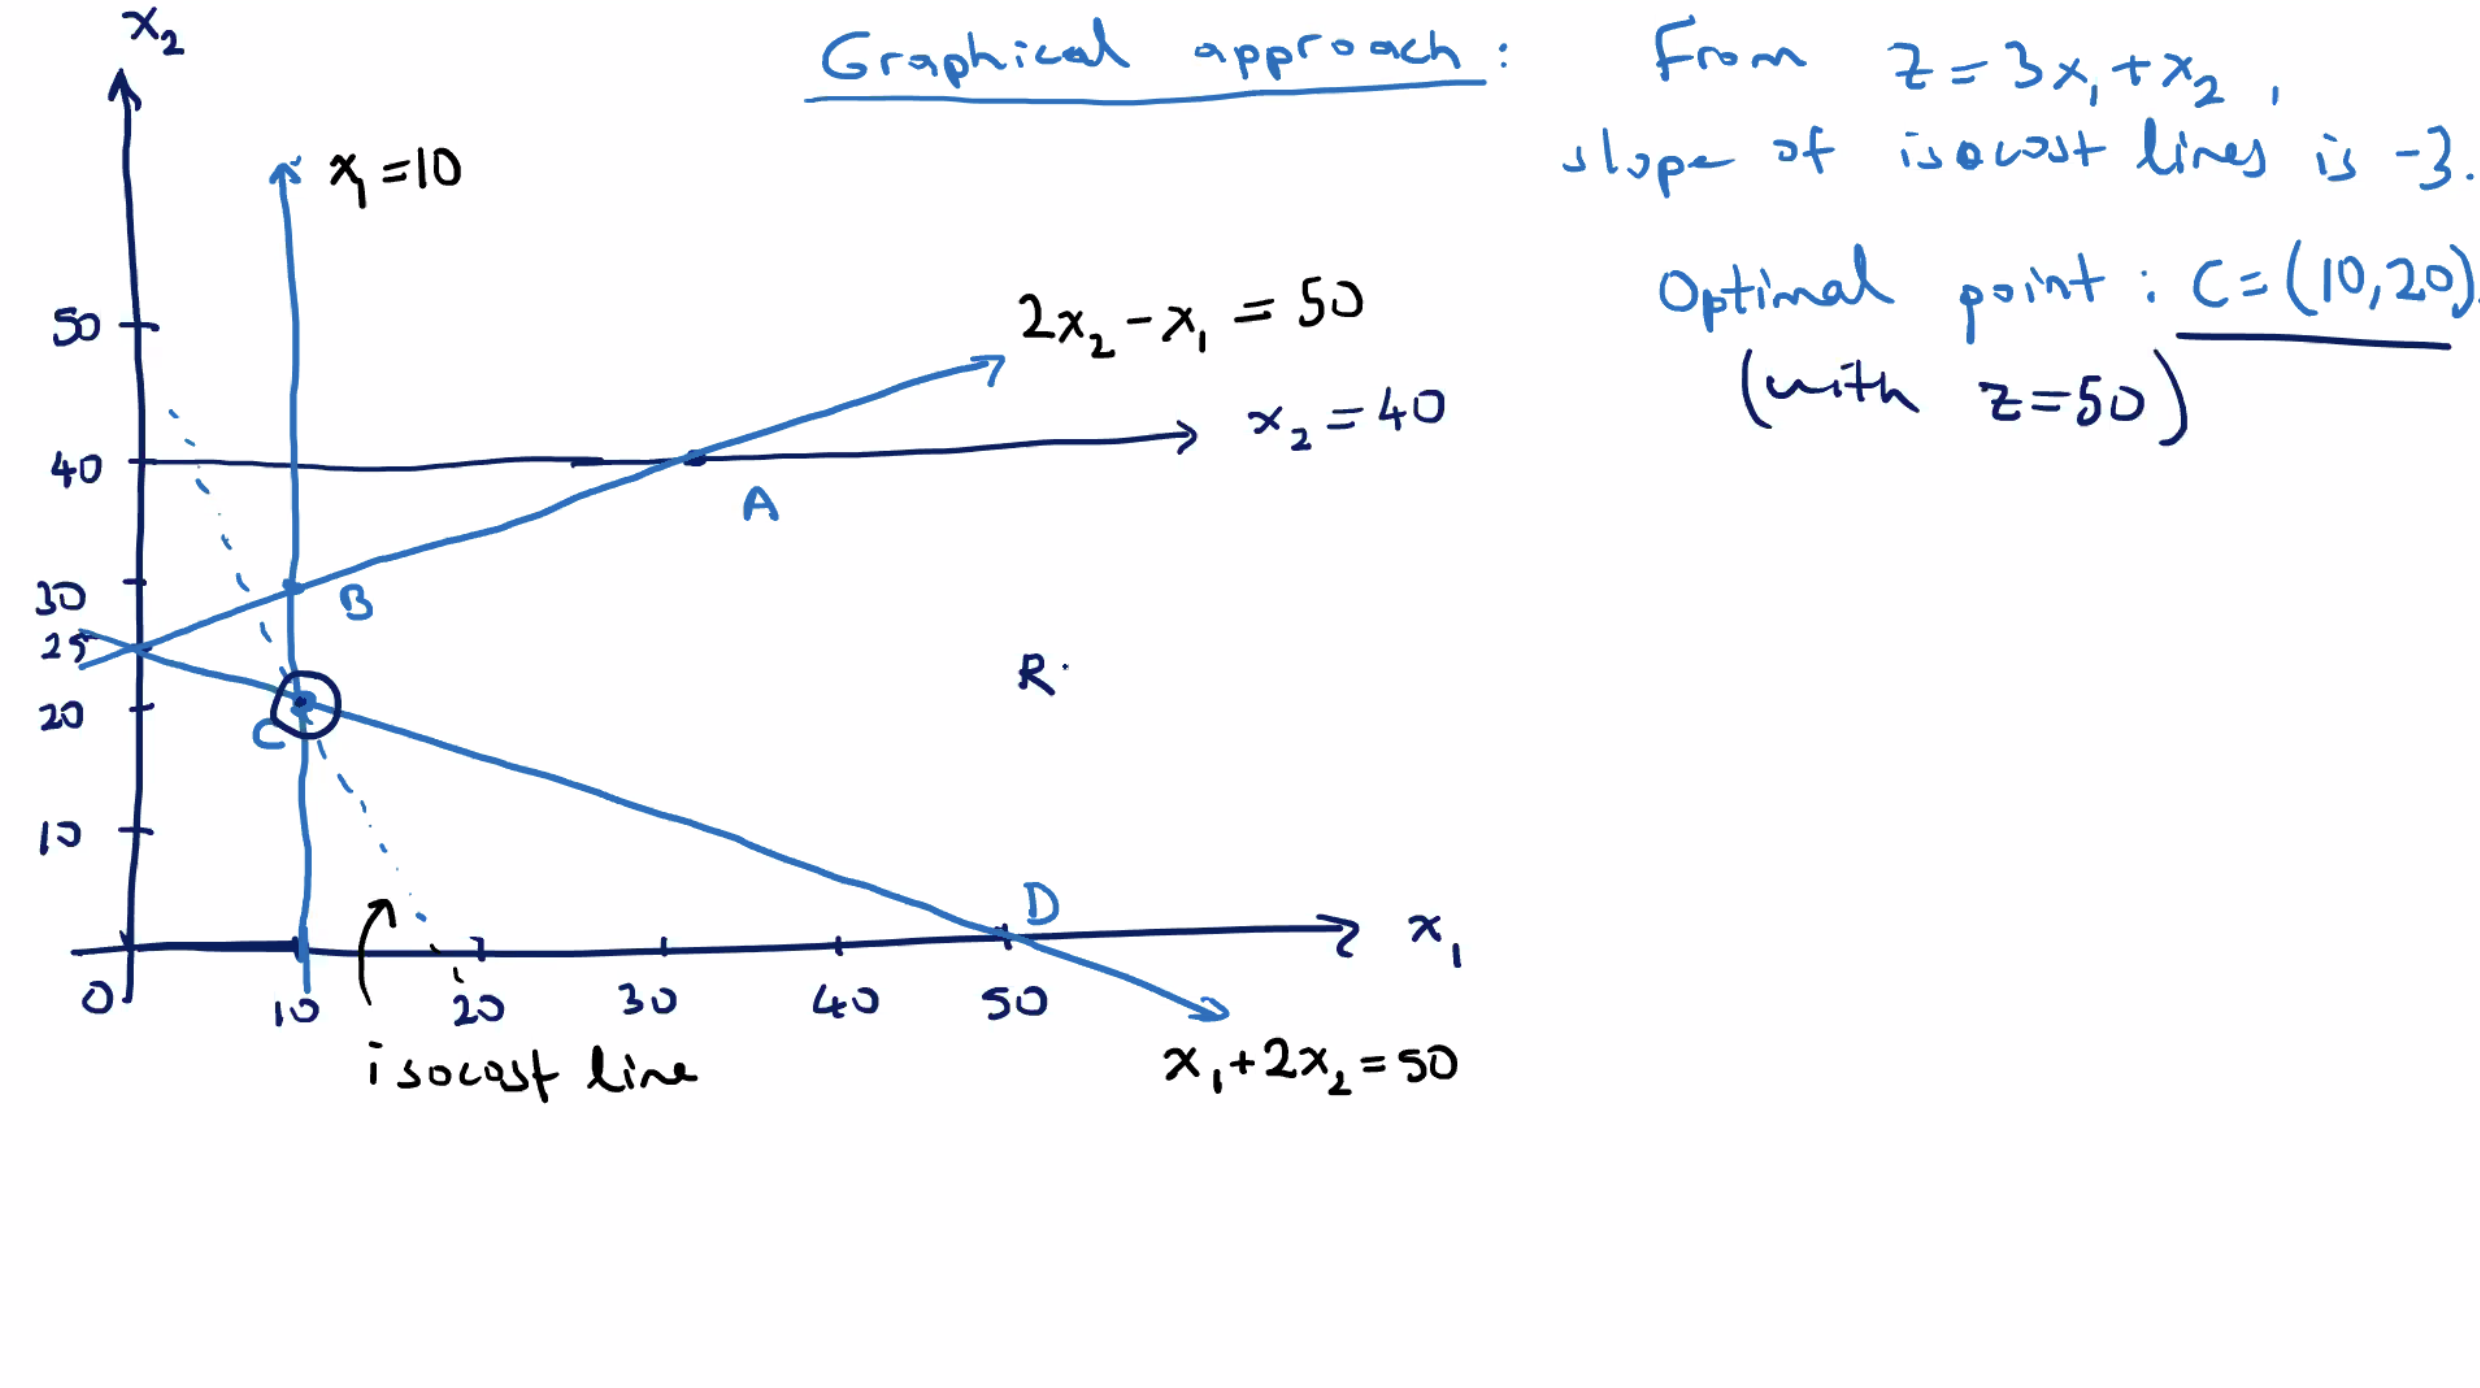 x₂
Graphical approach : From z = 3x₁ + x₂ ,
slope of isocost lines is -3.
x₁ = 10
Optimal point : C = (10,20).
(with z = 50)
2x₂ - x₁ = 50
x₂ = 40
50
40
A
30
B
25
R
20
C
10
D
x₁
0
10
20
30
40
50
isocost line
x₁ + 2x₂ = 50